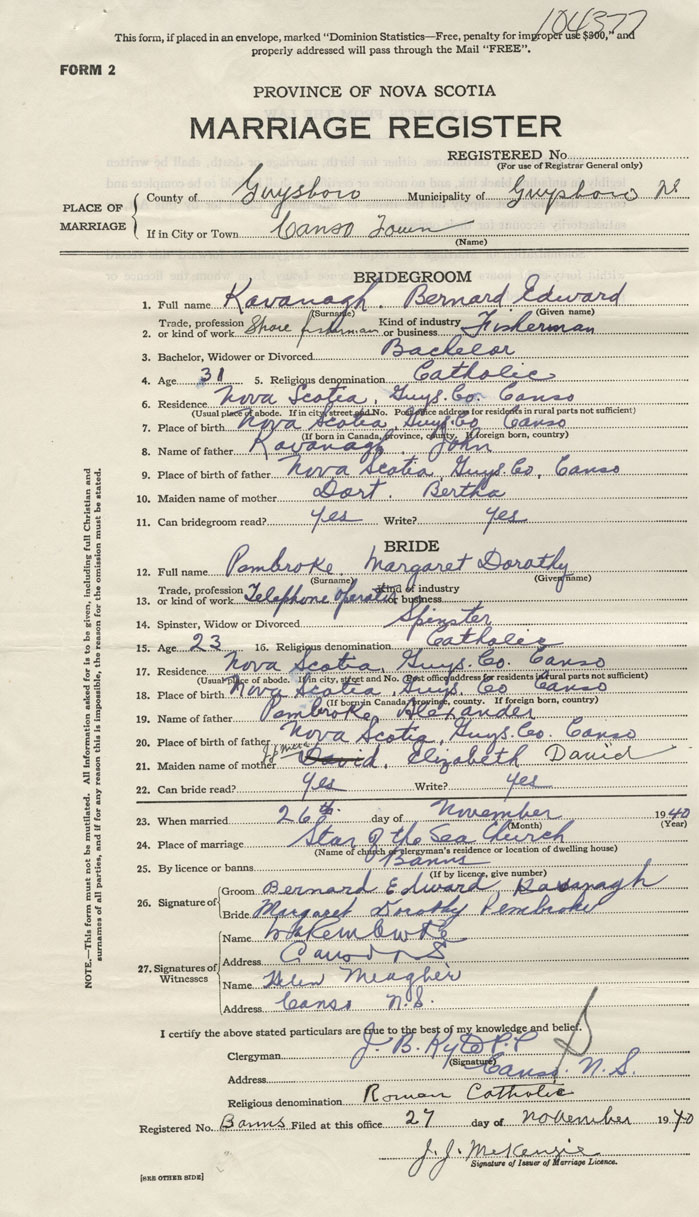 104377
This form, if placed in an envelope, marked "Dominion Statistics—Free, penalty for improper use $300," and
properly addressed will pass through the Mail "FREE".
FORM 2
PROVINCE OF NOVA SCOTIA
MARRIAGE REGISTER
REGISTERED No.
(For use of Registrar General only)
PLACE OF MARRIAGE
County of Guysboro Municipality of Guysboro NS
If in City or Town Canso Town
(Name)
BRIDEGROOM
1. Full name Kavanagh, Bernard Edward
(Surname) (Given name)
2. Trade, profession or kind of work Shore fisherman Kind of industry or business Fisherman
3. Bachelor, Widower or Divorced Bachelor
4. Age 31 5. Religious denomination Catholic
6. Residence Nova Scotia, Guys. Co. Canso
(Usual place of abode. If in city, street and No. Post office address for residents in rural parts not sufficient)
7. Place of birth Nova Scotia, Guys. Co Canso
(If born in Canada, province, county. If foreign born, country)
8. Name of father Kavanagh, John
9. Place of birth of father Nova Scotia, Guys. Co. Canso
10. Maiden name of mother Dort. Bertha
11. Can bridegroom read? yes Write? yes
BRIDE
12. Full name Pembroke, Margaret Dorothy
(Surname) (Given name)
13. Trade, profession or kind of work Telephone operator Kind of industry or business
14. Spinster, Widow or Divorced Spinster
15. Age 23 16. Religious denomination Catholic
17. Residence Nova Scotia, Guys. Co. Canso
(Usual place of abode. If in city, street and No. Post office address for residents in rural parts not sufficient)
18. Place of birth Nova Scotia, Guys. Co Canso
(If born in Canada, province, county. If foreign born, country)
19. Name of father Pembroke, Alexander
20. Place of birth of father Nova Scotia, Guys. Co. Canso
21. Maiden name of mother David, Elizabeth David
22. Can bride read? yes Write? yes
23. When married 26th. day of November 1940
(Month) (Year)
24. Place of marriage Star of the Sea Church
(Name of church or clergyman's residence or location of dwelling house)
25. By licence or banns Banns
(If by licence, give number)
26. Signature of
Groom Bernard Edward Kavanagh
Bride Margaret Dorothy Pembroke
27. Signatures of Witnesses
Name
Address Canso N S
Name Helen Meagher
Address Canso N.S.
I certify the above stated particulars are true to the best of my knowledge and belief.
Clergyman J. B. Kyte P.P
(Signature)
Address Canso. N. S.
Religious denomination Roman Catholic
Registered No. Banns Filed at this office 27 day of november 1940
J. J. McKenzie
Signature of Issuer of Marriage Licence.
[SEE OTHER SIDE]
NOTE.—This form must not be mutilated. All Information asked for is to be given, including full Christian and
surnames of all parties, and if for any reason this is impossible, the reason for the omission must be stated.